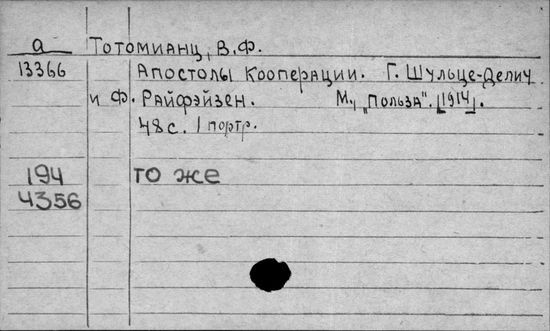 а Тотомианц, В.Ф.
13366 Апостолы кооперации. Г. Шульце-Делич
и Ф. Райфэйзен. М., „Польза". [1914].
48 с. 1 портр.
194 то же
4356